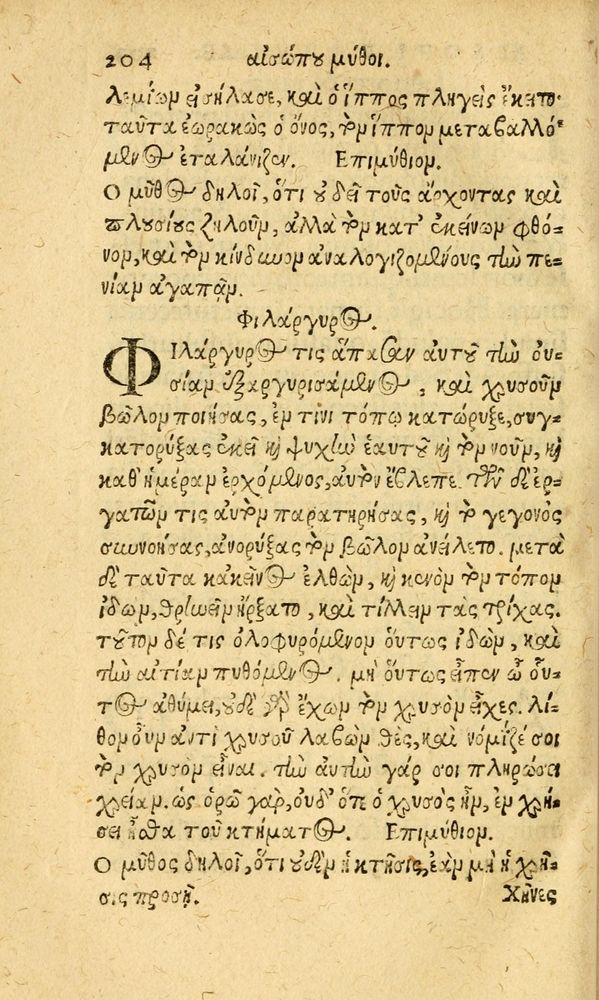 204 αἰσώπου μύθοι.
λεμίων εἰσήλασε, καὶ ὁ ἵππος πληγεὶς ἔπιπτε.
ταῦτα ἑωρακὼς ὁ ὄνος, τὸν ἵππον μεταβαλλό-
μενος ἐταλάνιζεν. Επιμύθιον.
Ο μῦθος δηλοῖ, ὅτι οὐ δεῖ τοὺς ἄρχοντας καὶ
πλουσίους ζηλοῦν, ἀλλὰ τὸν κατ’ ἐκείνων φθό-
νον, καὶ τὸν κίνδυνον ἀναλογιζομένους τὴν πε-
νίαν ἀγαπᾷν.
Φιλάργυρος.
ΦΙλάργυρός τις ἅπασαν αὑτοῦ τὴν οὐ-
σίαν ἐξαργυρισάμενος, καὶ χρυσοῦν
βῶλον ποιήσας, ἔν τινι τόπῳ κατώρυξε, συγ-
κατορύξας ἐκεῖ καὶ ψυχὴν ἑαυτοῦ καὶ τὸν νοῦν, καὶ
καθ’ ἡμέραν ἐρχόμενος, αὐτὸν ἔβλεπε. τῶν δὲ ἐρ-
γατῶν τις αὐτὸν παρατηρήσας, καὶ τὸ γεγονὸς
συννοήσας, ἀνορύξας τὸν βῶλον ἀνείλετο. μετὰ
δὲ ταῦτα κἀκεῖνος ἐλθὼν, καὶ κενὸν τὸν τόπον
ἰδὼν, θρηνεῖν ἤρξατο, καὶ τίλλειν τὰς τρίχας.
τοῦτον δέ τις ὀλοφυρόμενον οὕτως ἰδὼν, καὶ
τὴν αἰτίαν πυθόμενος. μὴ οὕτως εἶπεν ὦ οὗ-
τος ἀθύμει, οὐδὲ γὰρ ἔχων τὸν χρυσὸν εἶχες. λί-
θον οὖν ἀντὶ χρυσοῦ λαβὼν θὲς, καὶ νόμιζέ σοι
τὸν χρυσὸν εἶναι. τὴν αὐτὴν γάρ σοι πληρώσει
χρείαν. ὡς ὁρῶ γὰρ, οὐδ’ ὅτε ὁ χρυσὸς ἦν, ἐν χρή-
σει ἦσθα τοῦ κτήματος. Επιμύθιον.
Ο μῦθος δηλοῖ, ὅτι οὐδὲν ἡ κτῆσις, ἐὰν μὴ ἡ χρῆ-
σις προσῇ. Χῆνες